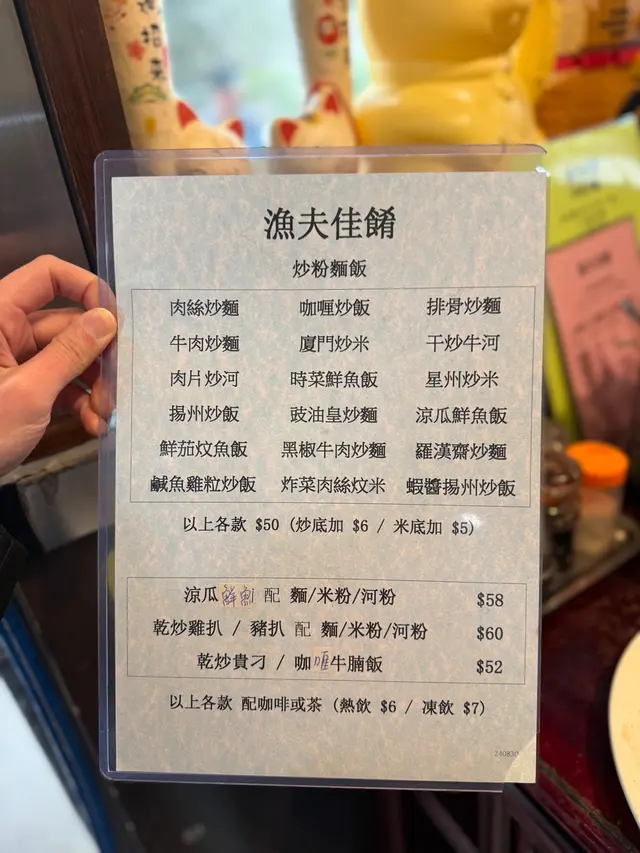 招來
漁夫佳餚
炒粉麵飯
肉絲炒麵 咖喱炒飯 排骨炒麵
牛肉炒麵 廈門炒米 干炒牛河
肉片炒河 時菜鮮魚飯 星州炒米
揚州炒飯 豉油皇炒麵 涼瓜鮮魚飯
鮮茄炆魚飯 黑椒牛肉炒麵 羅漢齋炒麵
鹹魚雞粒炒飯 炸菜肉絲炆米 蝦醬揚州炒飯
以上各款 $50 (炒底加 $6 / 米底加 $5)
涼瓜鮮魚 配 麵/米粉/河粉 $58
乾炒雞扒 / 豬扒 配 麵/米粉/河粉 $60
乾炒貴刁 / 咖喱牛腩飯 $52
以上各款 配咖啡或茶 (熱飲 $6 / 凍飲 $7)
240830